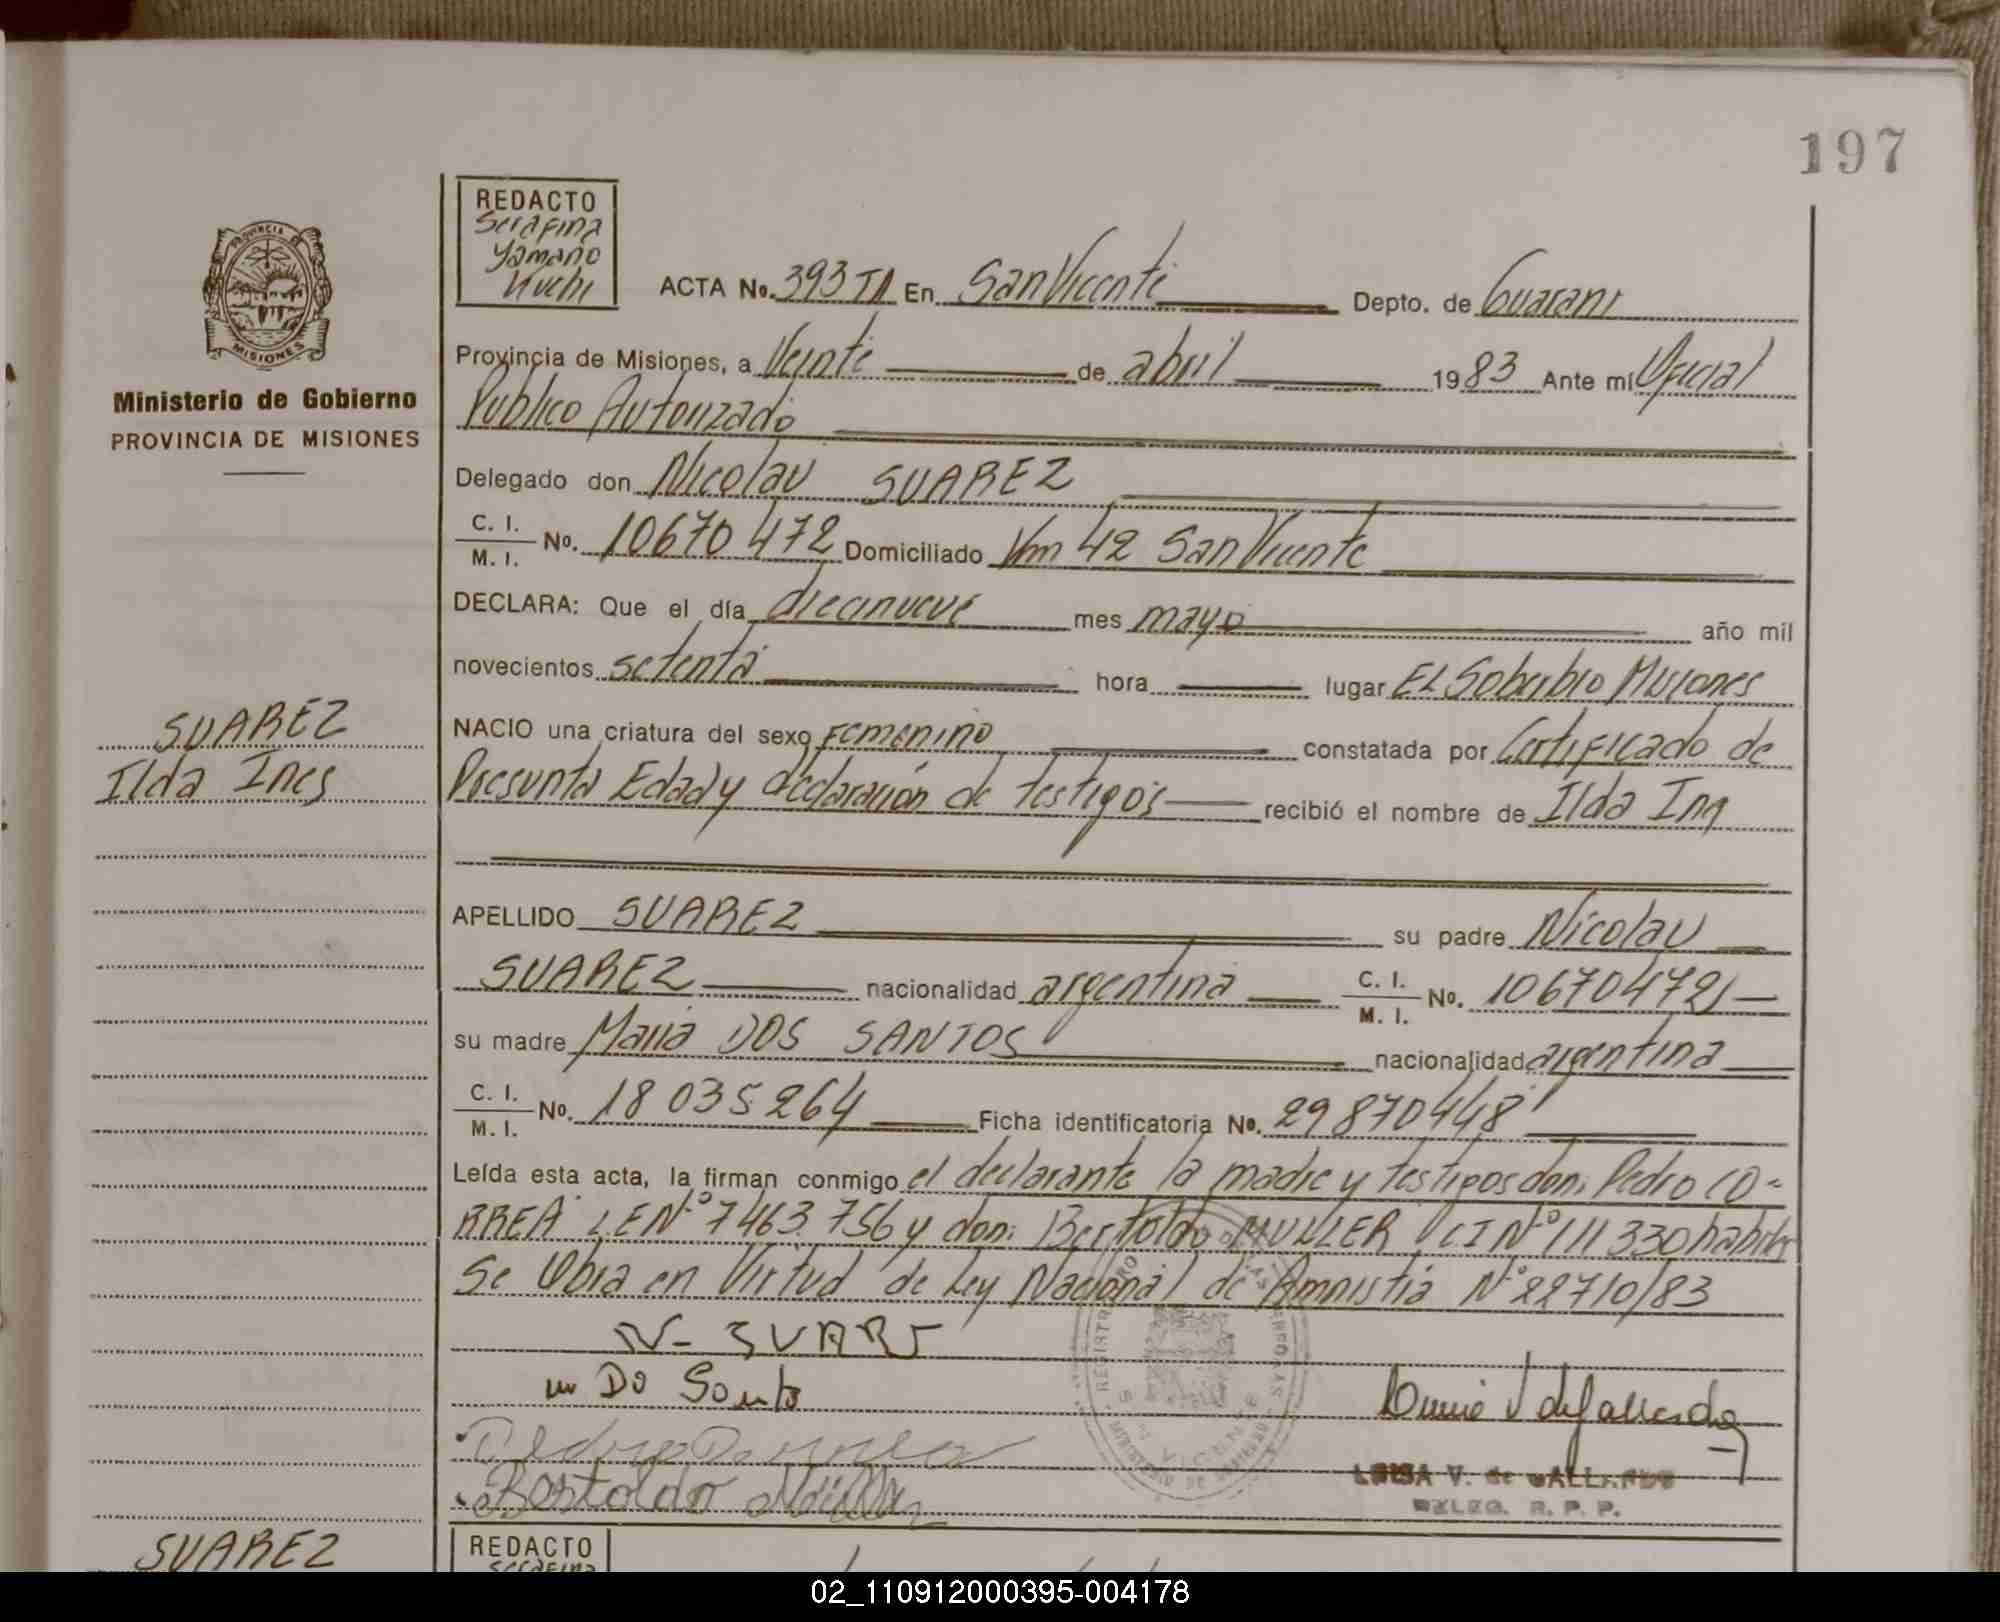 197
REDACTO
Serafina
Yamaño
Kuchi
PROVINCIA DE
MISIONES
Ministerio de Gobierno
PROVINCIA DE MISIONES
ACTA No. 393 TI En San Vicente Depto. de Guarani
Provincia de Misiones, a Veinte de abril 1983 Ante mí Oficial
Publico Autorizado
Delegado don Nicolau SUAREZ
C. I.
M. I. No. 10670472 Domiciliado Km 42 San Vicente
DECLARA: Que el día diecinueve mes mayo año mil
novecientos setenta hora lugar El Soberbio Misiones
NACIO una criatura del sexo Femenino constatada por Certificado de
Presunta Edad y declaración de testigos recibió el nombre de Ilda Ines
SUAREZ
Ilda Ines
APELLIDO SUAREZ su padre Nicolau
SUAREZ nacionalidad argentina C. I. M. I. No. 10670472
su madre Maria DOS SANTOS nacionalidad argentina
C. I.
M. I. No. 18 035 264 Ficha identificatoria No. 29870448
Leída esta acta, la firman conmigo el declarante la madre y testigos don: Pedro CO-
RREA LE N° 7463.756 y don: Bertoldo MULLER CI N° 111330 habiles
Se Obra en Virtud de Ley Nacional de Amnistia N° 22710/83
N- SUARE
m Do Santo
Bertoldo Müller
LUISA V. de GALLARDO
DELEG. R. P. P.
SUAREZ
REDACTO
Serafina
02_110912000395-004178